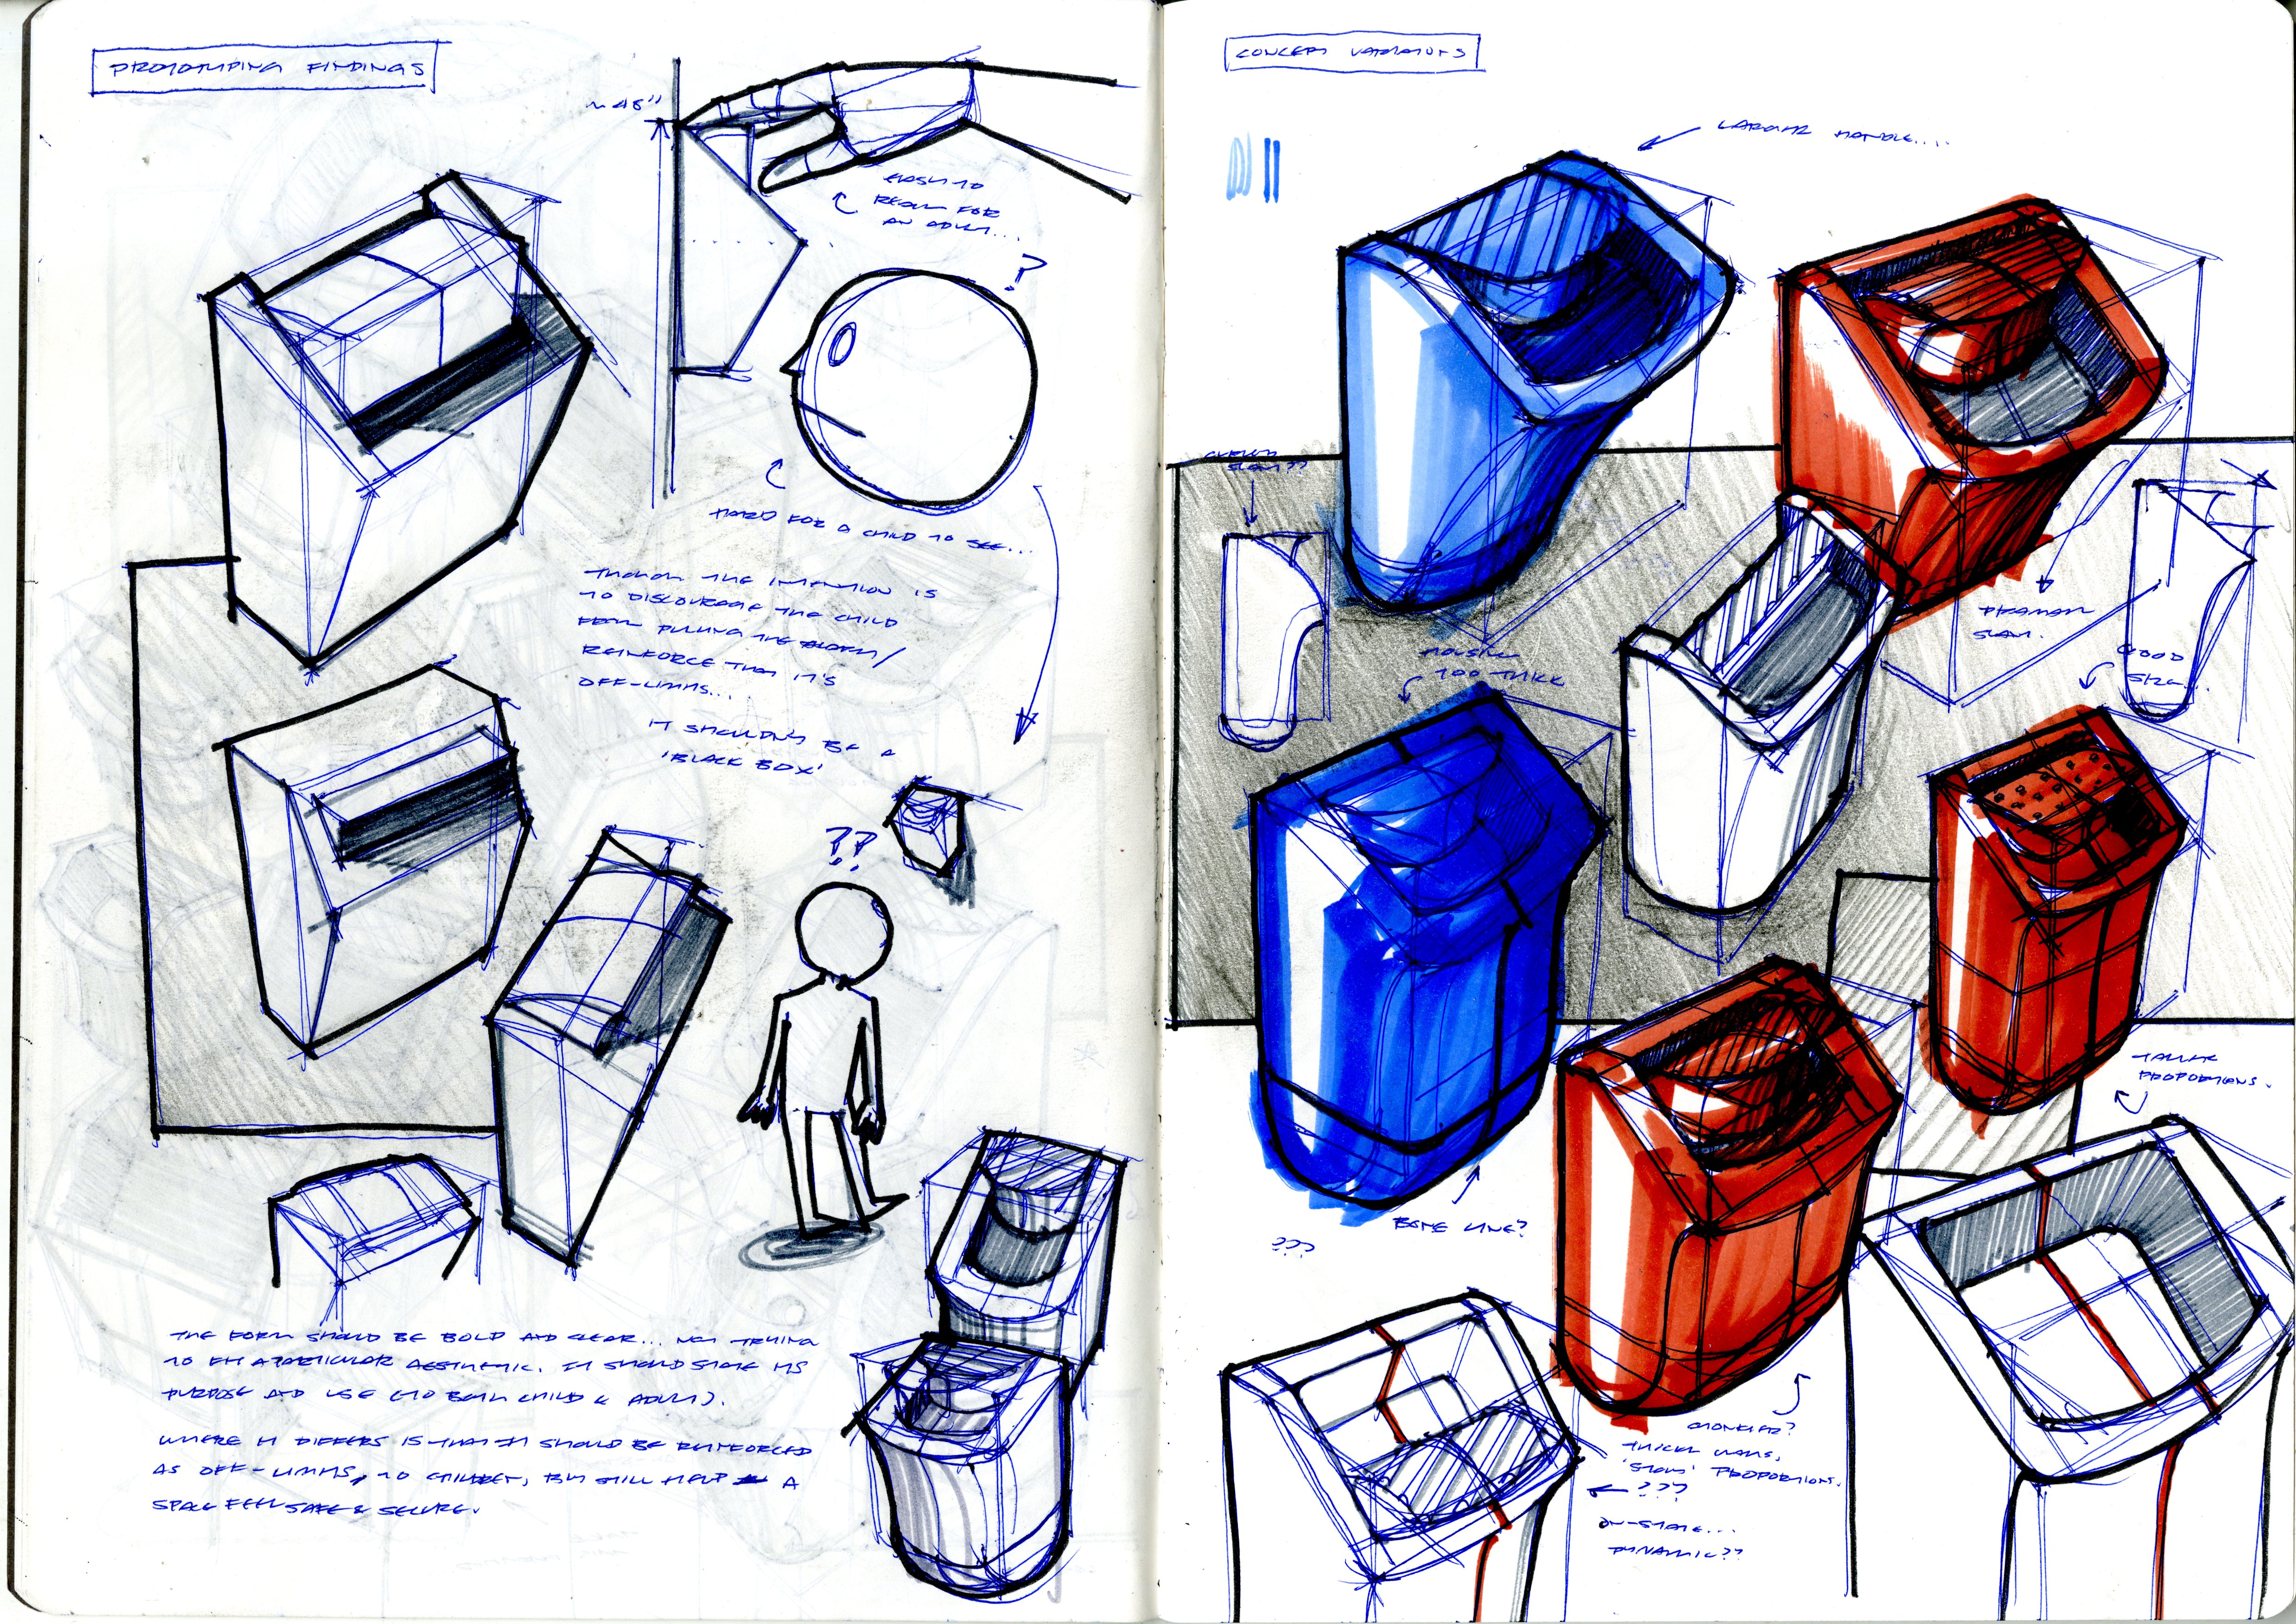 PROTOTYPING FINDINGS
~ 48"
EASY TO
REACH FOR
AN ADULT...
?
HARD FOR A CHILD TO SEE...
THOUGH THE INTENTION IS
TO DISCOURAGE THE CHILD
FROM PULLING THE ALARM /
REINFORCE THAT IT'S
OFF-LIMITS...
IT SHOULDN'T BE A
'BLACK BOX'
??
THE FORM SHOULD BE BOLD AND CLEAR... NOT TRYING
TO FIT A PARTICULAR AESTHETIC. IT SHOULD STATE ITS
PURPOSE AND USE (TO BOTH CHILD & ADULT).
WHERE IT DIFFERS IS THAT IT SHOULD BE REINFORCED
AS OFF-LIMITS, TO CHILDREN, BUT STILL HELP A
SPACE FEEL SAFE & SECURE.
CONCEPT VARIATIONS
LARGER HANDLE....
??
HOUSING
TOO THICK
GOOD
SIZE...
TALLER
PROPORTIONS.
BASE LINE?
???
CHONKIER?
THICK WALLS,
PROPORTIONS.
???
ON-STATE...
DYNAMIC??